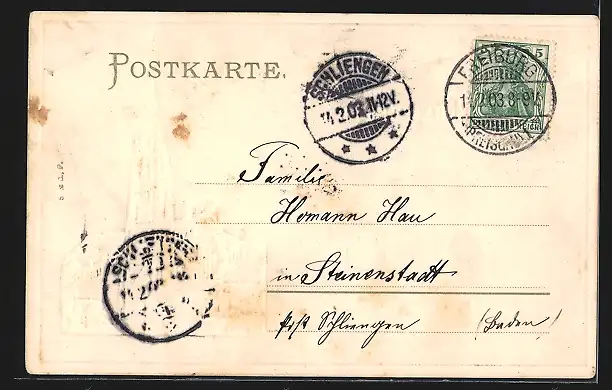 POSTKARTE.
SCHLIENGEN
14.2.03.11-12V.
FREIBURG
14.2.03.8-9V.
(BREISGAU)
5
Familie
Homann Hau
in Steinenstadt
Post Schliengen (Baden)